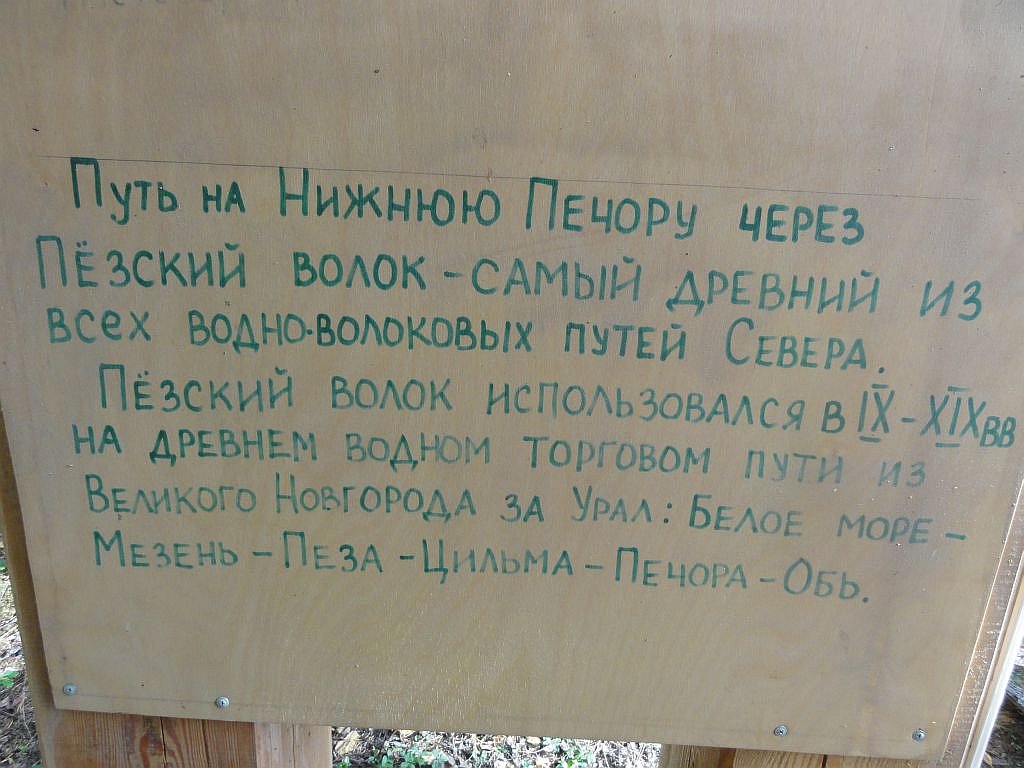 Путь на Нижнюю Печору через
Пёзский волок - самый древний из
всех водно-волоковых путей Севера.
Пёзский волок использовался в IX - XIXвв
на древнем водном торговом пути из
Великого Новгорода за Урал: Белое море -
Мезень - Пеза - Цильма - Печора - Обь.